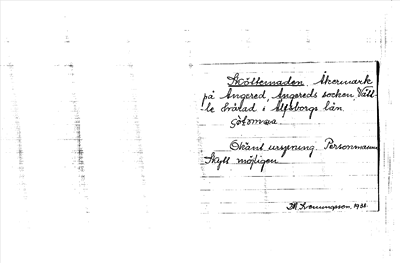 Skötternaden. Åkermark
på Angered, Angereds socken, Vätt-
le härad i Älfsborgs län.
Okänt ursprung. Personnamn
Skytt möjligen.
1931.